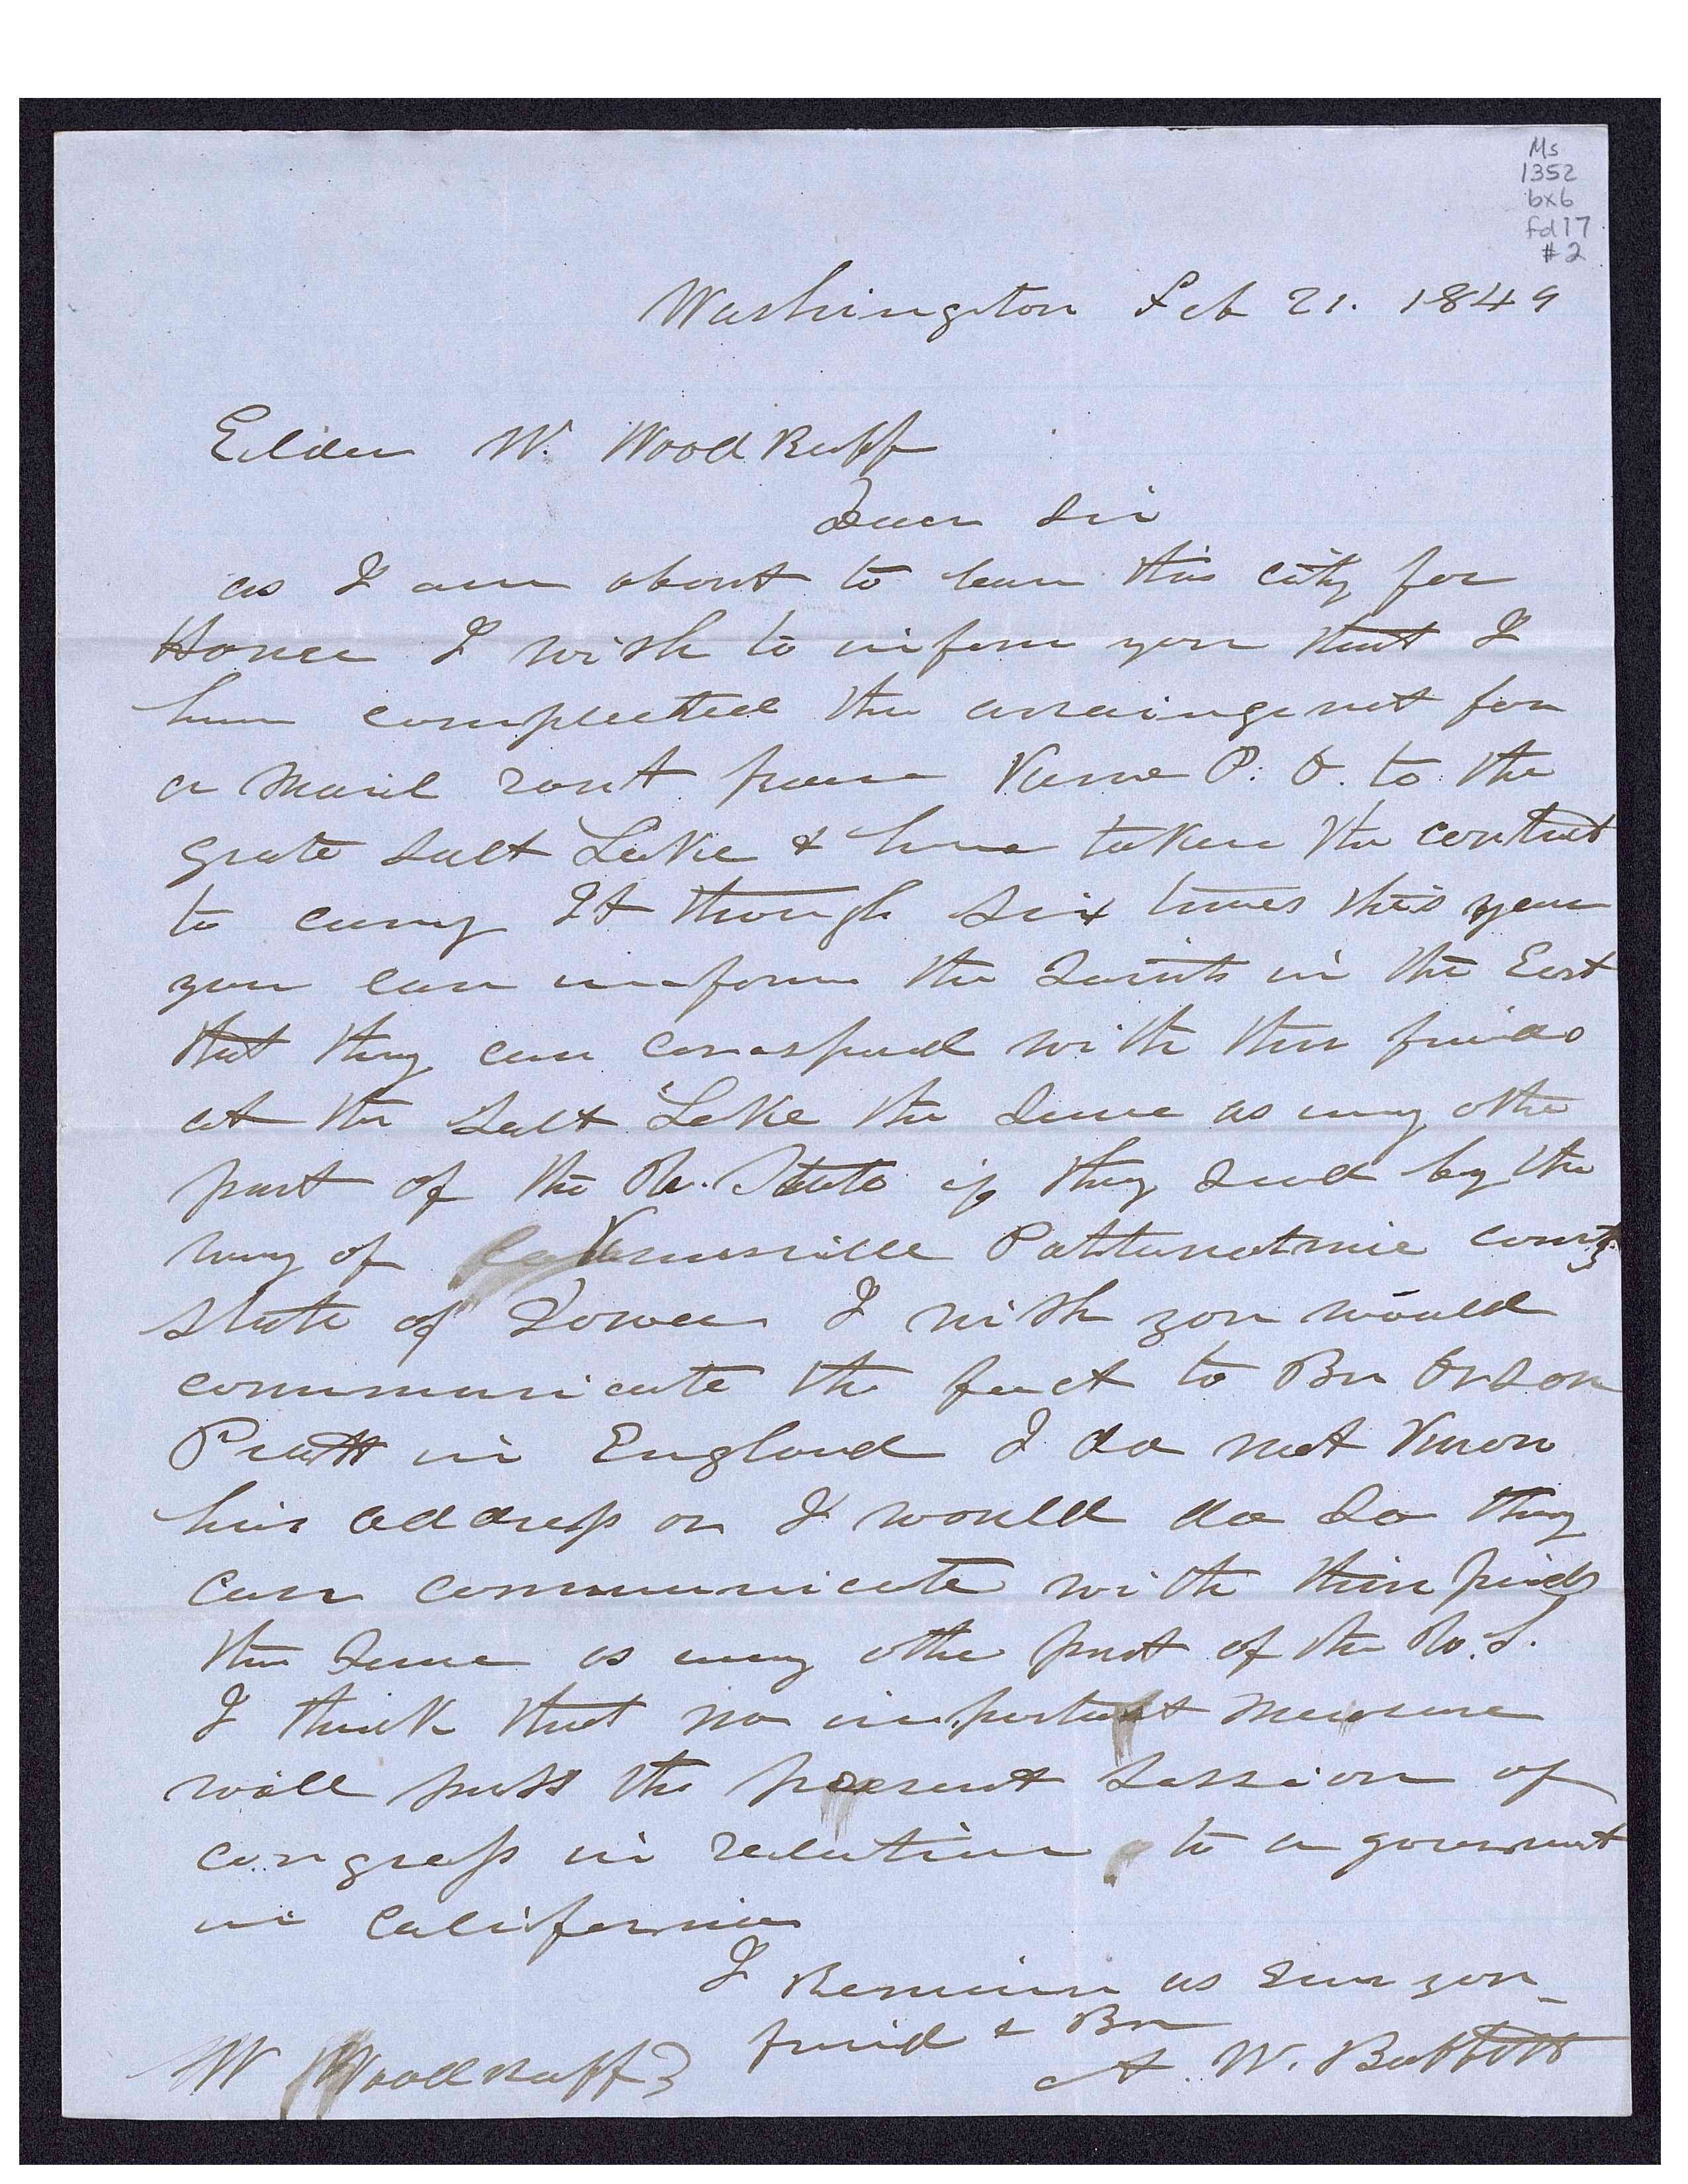 Ms
1352
bx6
fd17
#2
Washington Feb 21. 1849
Elder W. WoodRuff
Dear Sir
as I am about to leave this city for
Home I wish to inform you that I
have complected the arraingemet for
a Mail rout from Kane P. O. to the
grate Salt Lake & have taken the contract
to carry It through six times this year
you can inform the Saints in the East
that they can corospend with ther friends
at the Salt Lake the Same as any other
part of the U. States if they Send by the
way of Kanesville Pattawatmie county
State of Iowa I wish you would
communicate the fact to Br Orson
Pratt in England I do not Know
his address or I would do So they
can communicate with thire friends
the Same as any other part of the U. S.
I think that no important Measure
will pass the present Session of
congress in relation to a goverment
in California
I Remain as Ever your
friend & Br
A. W. Babbitt
W Woodruff